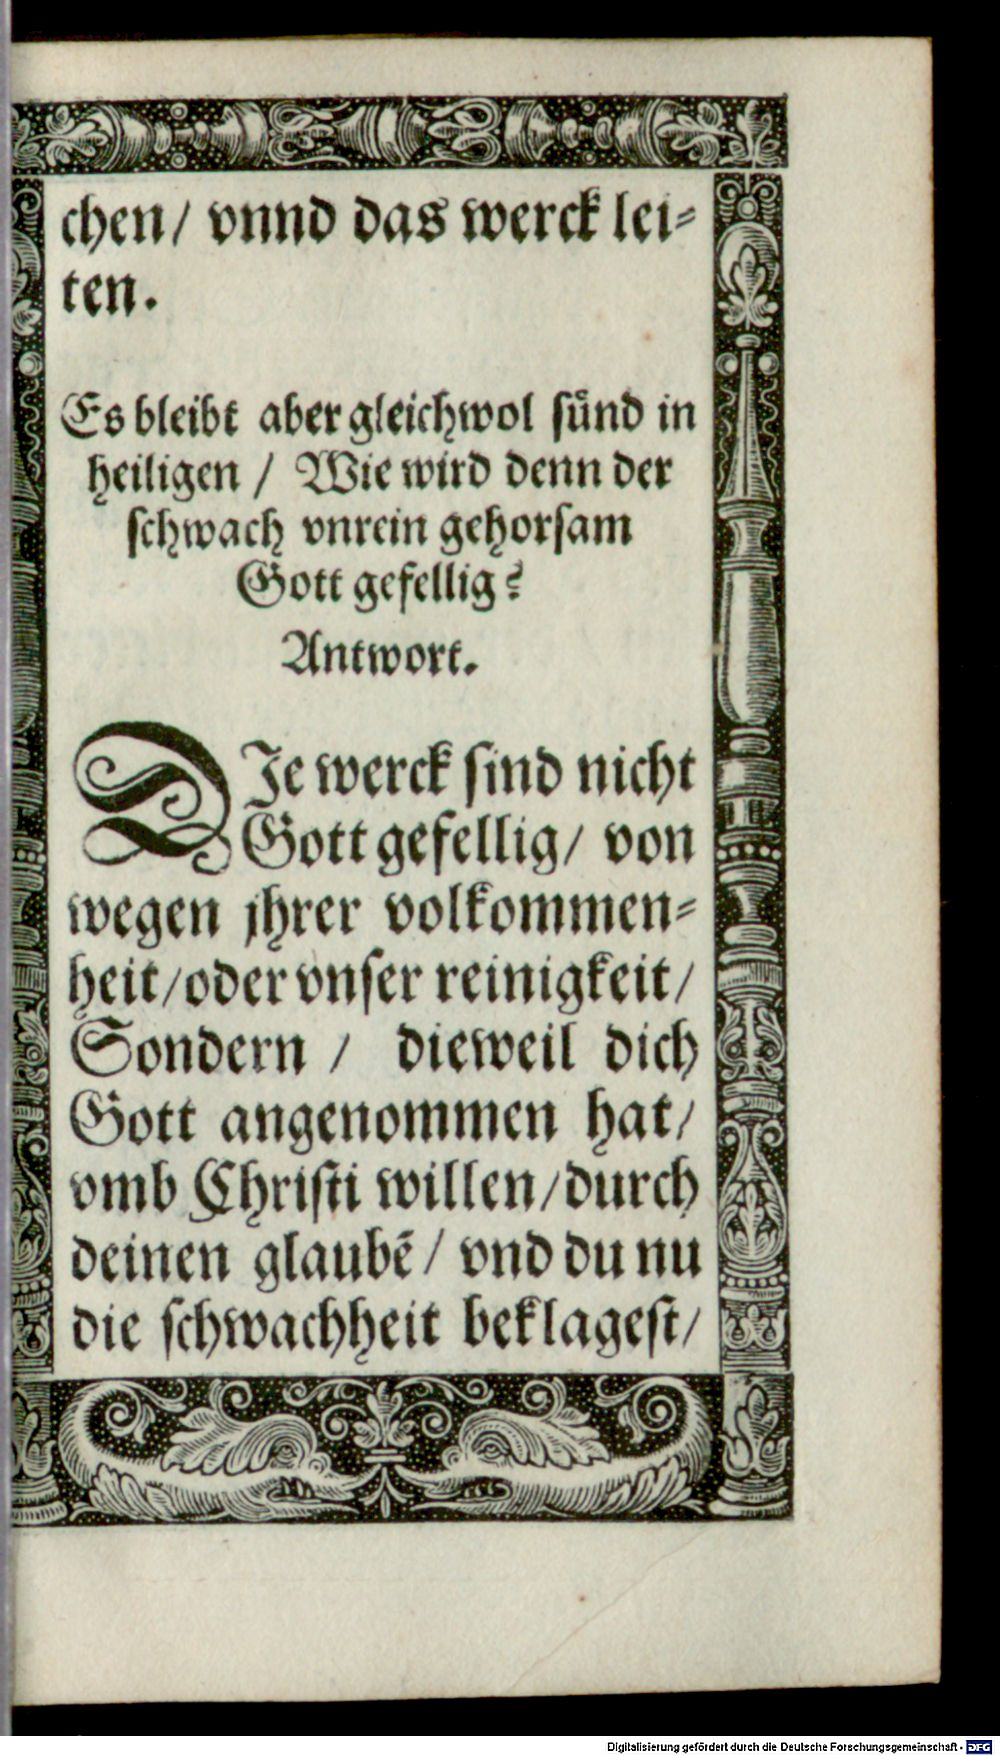 chen/ vnnd das werck lei⸗
ten.
Es bleibt aber gleichwol suͤnd in
heiligen / Wie wird denn der
schwach vnrein gehorsam
Gott gefellig?
Antwort.
DJe werck sind nicht
Gott gefellig/ von
wegen jhrer volkommen⸗
heit/oder vnser reinigkeit/
Sondern / dieweil dich
Gott angenommen hat/
vmb Christi willen/durch
deinen glaubẽ/ vnd du nu
die schwachheit beklagest/
Digitalisierung gefördert durch die Deutsche Forschungsgemeinschaft - DFG